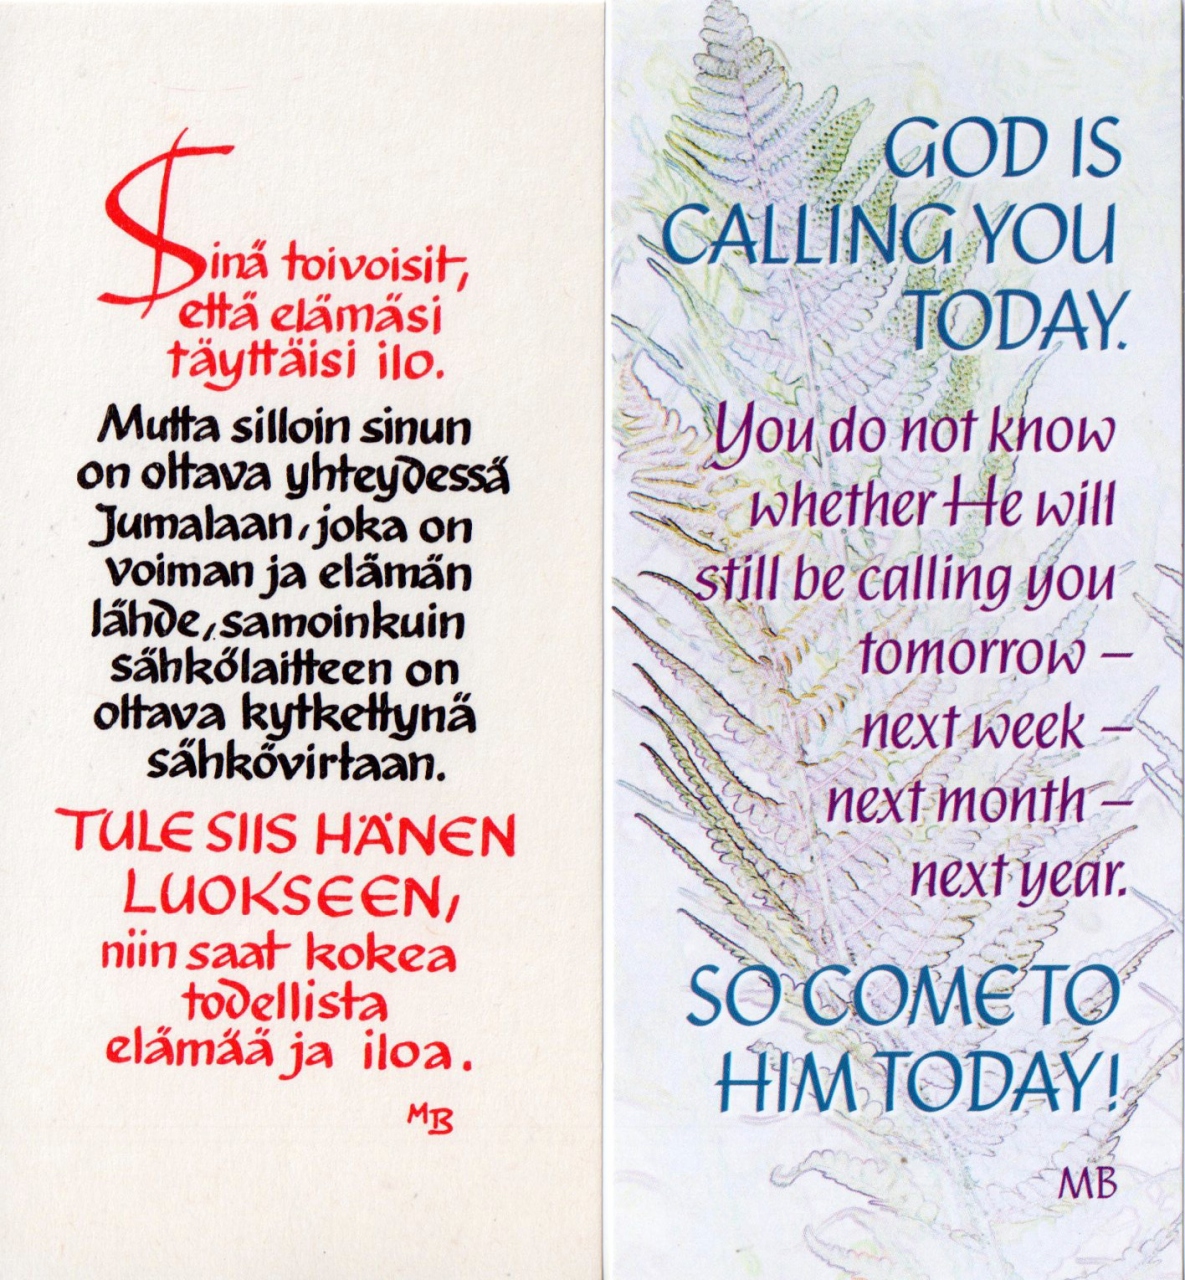 Sinä toivoisit,
että elämäsi
täyttäisi ilo.
Mutta silloin sinun
on oltava yhteydessä
Jumalaan, joka on
voiman ja elämän
lähde, samoinkuin
sähkőlaitteen on
oltava kytkettynä
sähkővirtaan.
TULE SIIS HÄNEN
LUOKSEEN,
niin saat kokea
todellista
elämää ja iloa.
MB
GOD IS
CALLING YOU
TODAY.
You do not know
whether He will
still be calling you
tomorrow –
next week –
next month –
next year.
SO COME TO
HIM TODAY!
MB